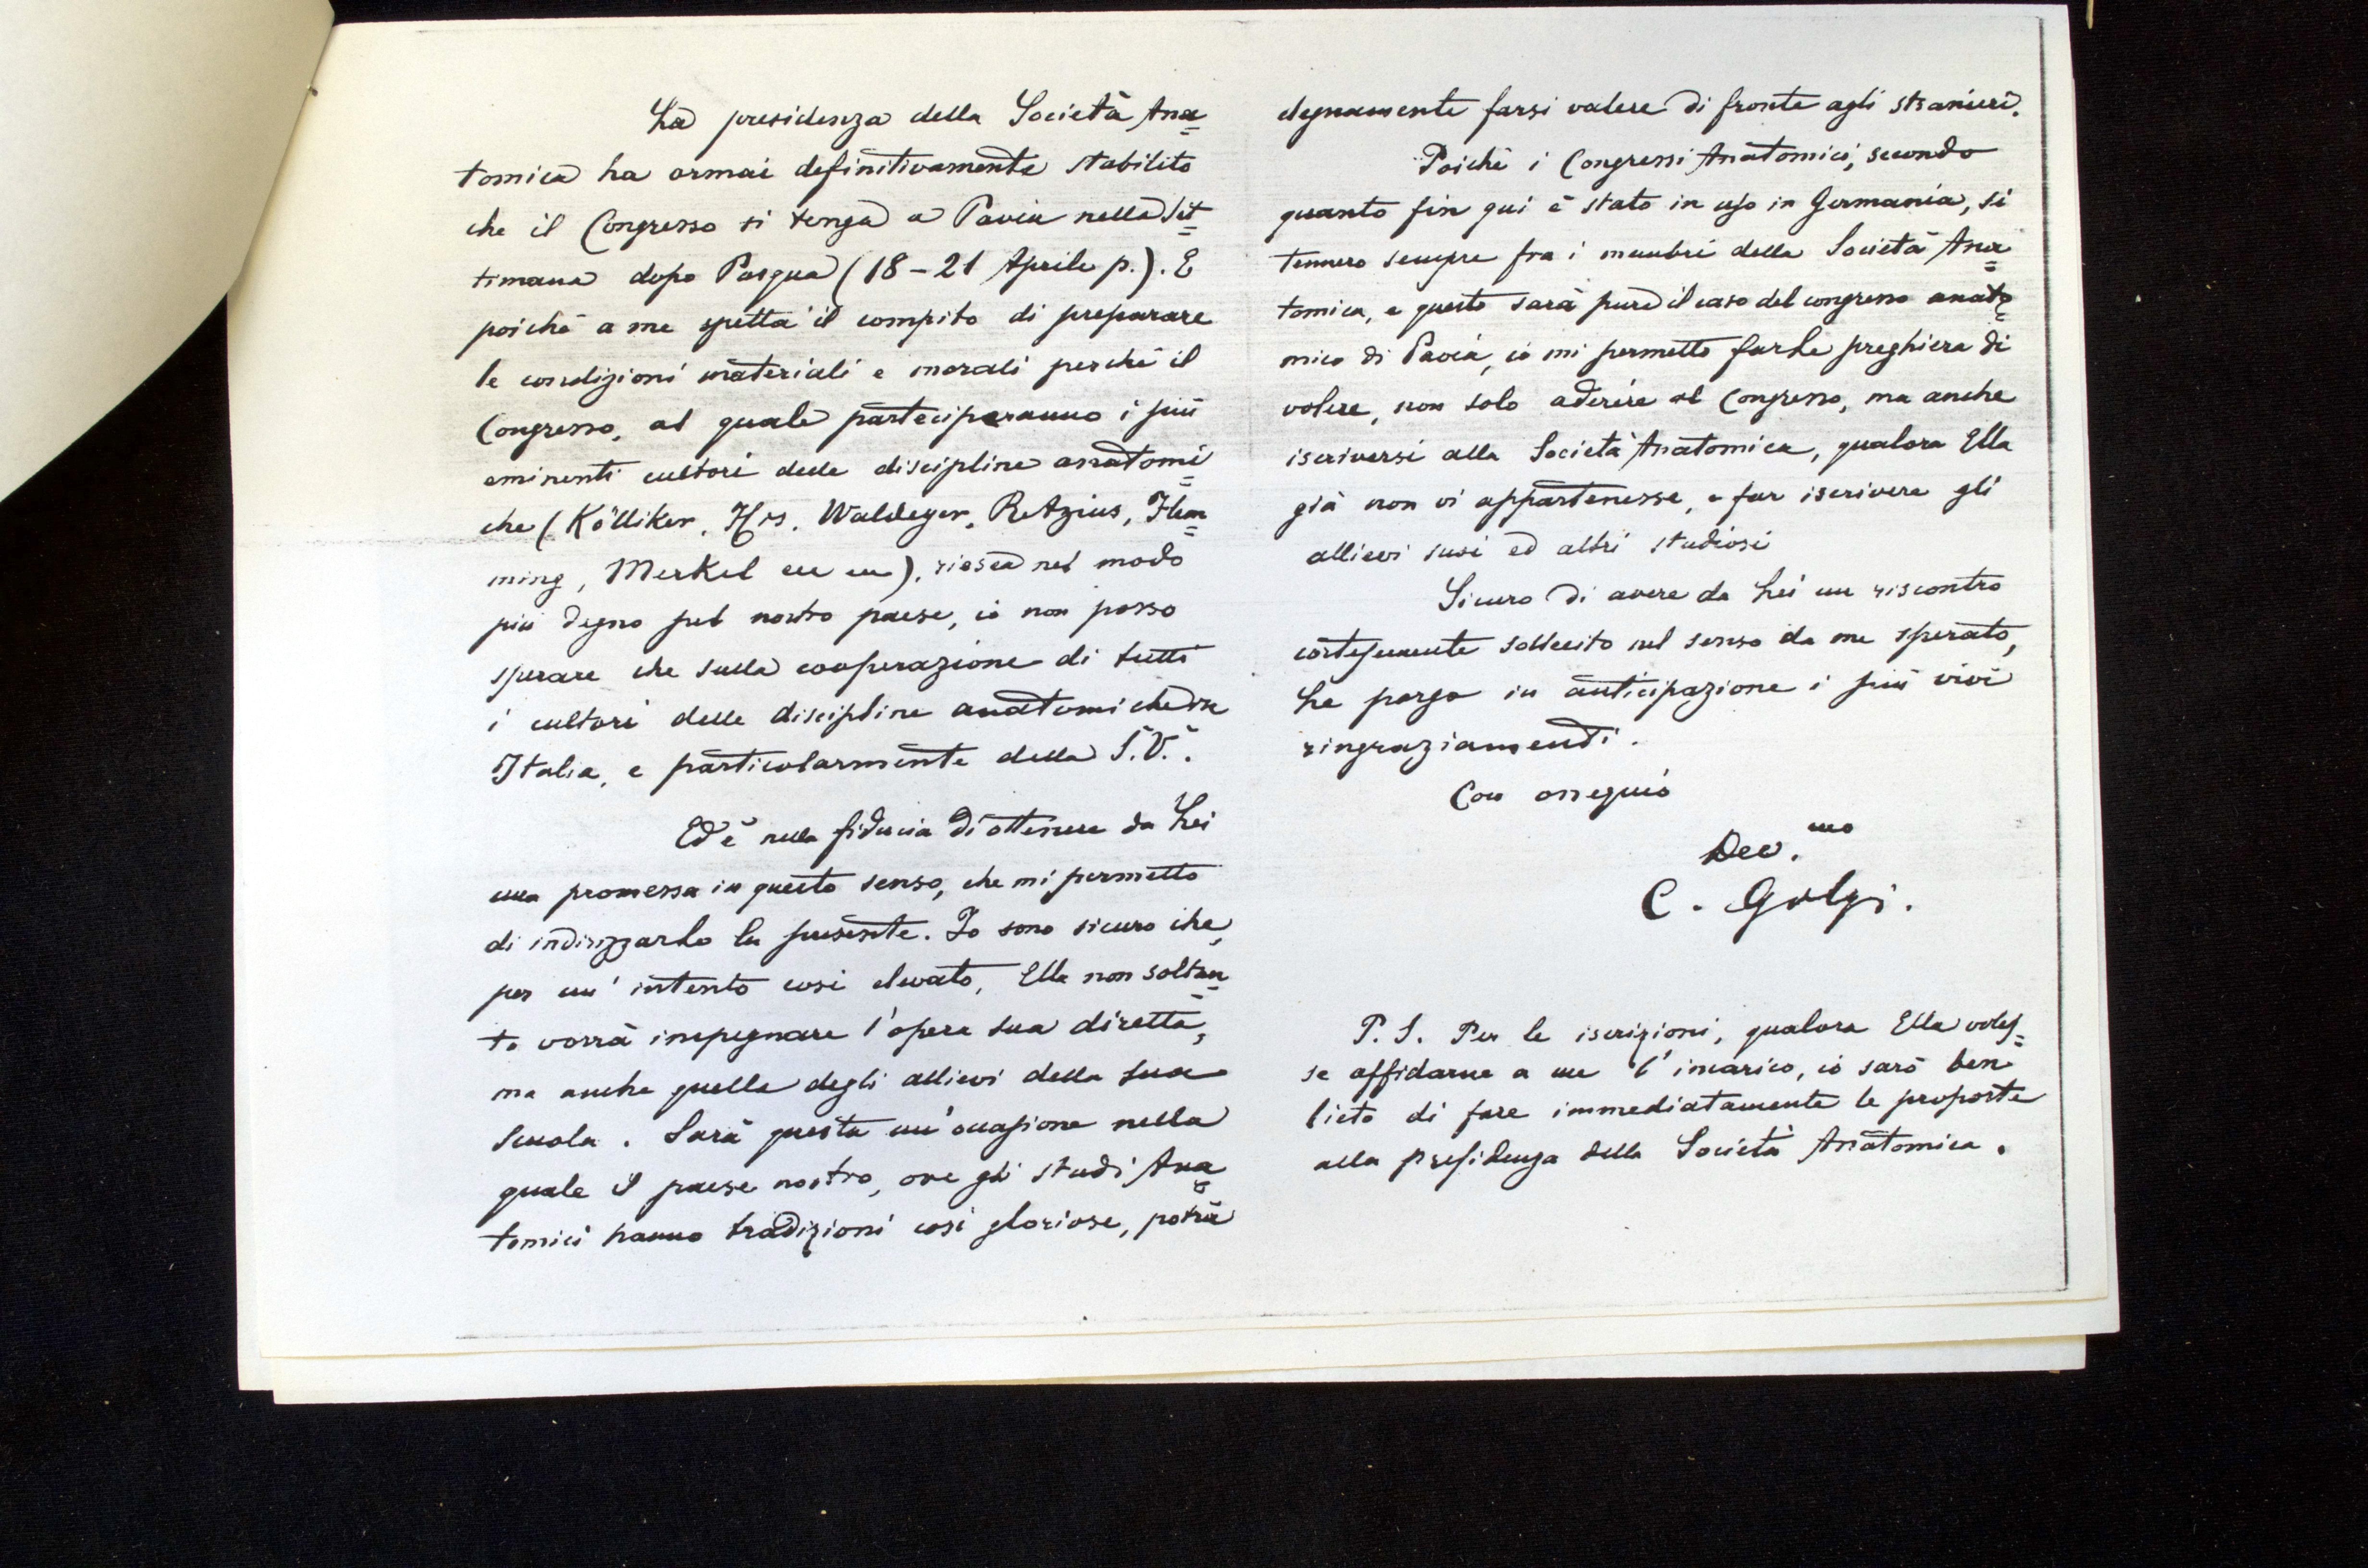 La presidenza della Società Ana=
tomica ha ormai definitivamente stabilito
che il Congresso si tenga a Pavia nella Set=
timana dopo Pasqua (18-21 Aprile p.). E
poichè a me spetta il compito di preparare
le condizioni materiali e morali perchè il
Congresso, al quale parteciperanno i più
eminenti cultori delle discipline anatomi=
che (Kölliker, His, Waldeyer, Retzius, Flem=
ming, Merkel ecc ecc), riesca nel modo
più degno pel nostro paese, io non posso
sperare che sulla cooperazione di tutti
i cultori delle discipline anatomiche in
Italia, e particolarmente della S.V.
Ed è nella fiducia di ottenere da Lei
una promessa in questo senso, che mi permetto
di indirizzarLe la presente. Io sono sicuro che,
per un' intento così elevato, Ella non soltan=
to vorrà impegnare l'opera sua diretta,
ma anche quella degli allievi della sua
Scuola. Sarà questa un'occasione nella
quale il paese nostro, ove gli studi Ana=
tomici hanno tradizioni così gloriose, potrà
degnamente farsi valere di fronte agli stranieri.
Poichè i Congressi Anatomici, secondo
quanto fin qui è stato in uso in Germania, si
tennero sempre fra i membri della Società Ana=
tomica, e questo sarà pure il caso del congresso anato=
mico di Pavia, io mi permetto farLe preghiera di
volere, non solo aderire al Congresso, ma anche
iscriversi alla Società Anatomica, qualora Ella
già non vi appartenesse, e far iscrivere gli
allievi suoi ed altri studiosi
Sicuro di avere da Lei un riscontro
cortesemente sollecito nel senso da me sperato,
Le porgo in anticipazione i più vivi
ringraziamenti.
Con ossequio
Dev.mo
C. Golgi.
P. S. Per le iscrizioni, qualora Ella voles=
se affidarne a me l'incarico, io sarò ben
lieto di fare immediatamente le proposte
alla presidenza della Società Anatomica.